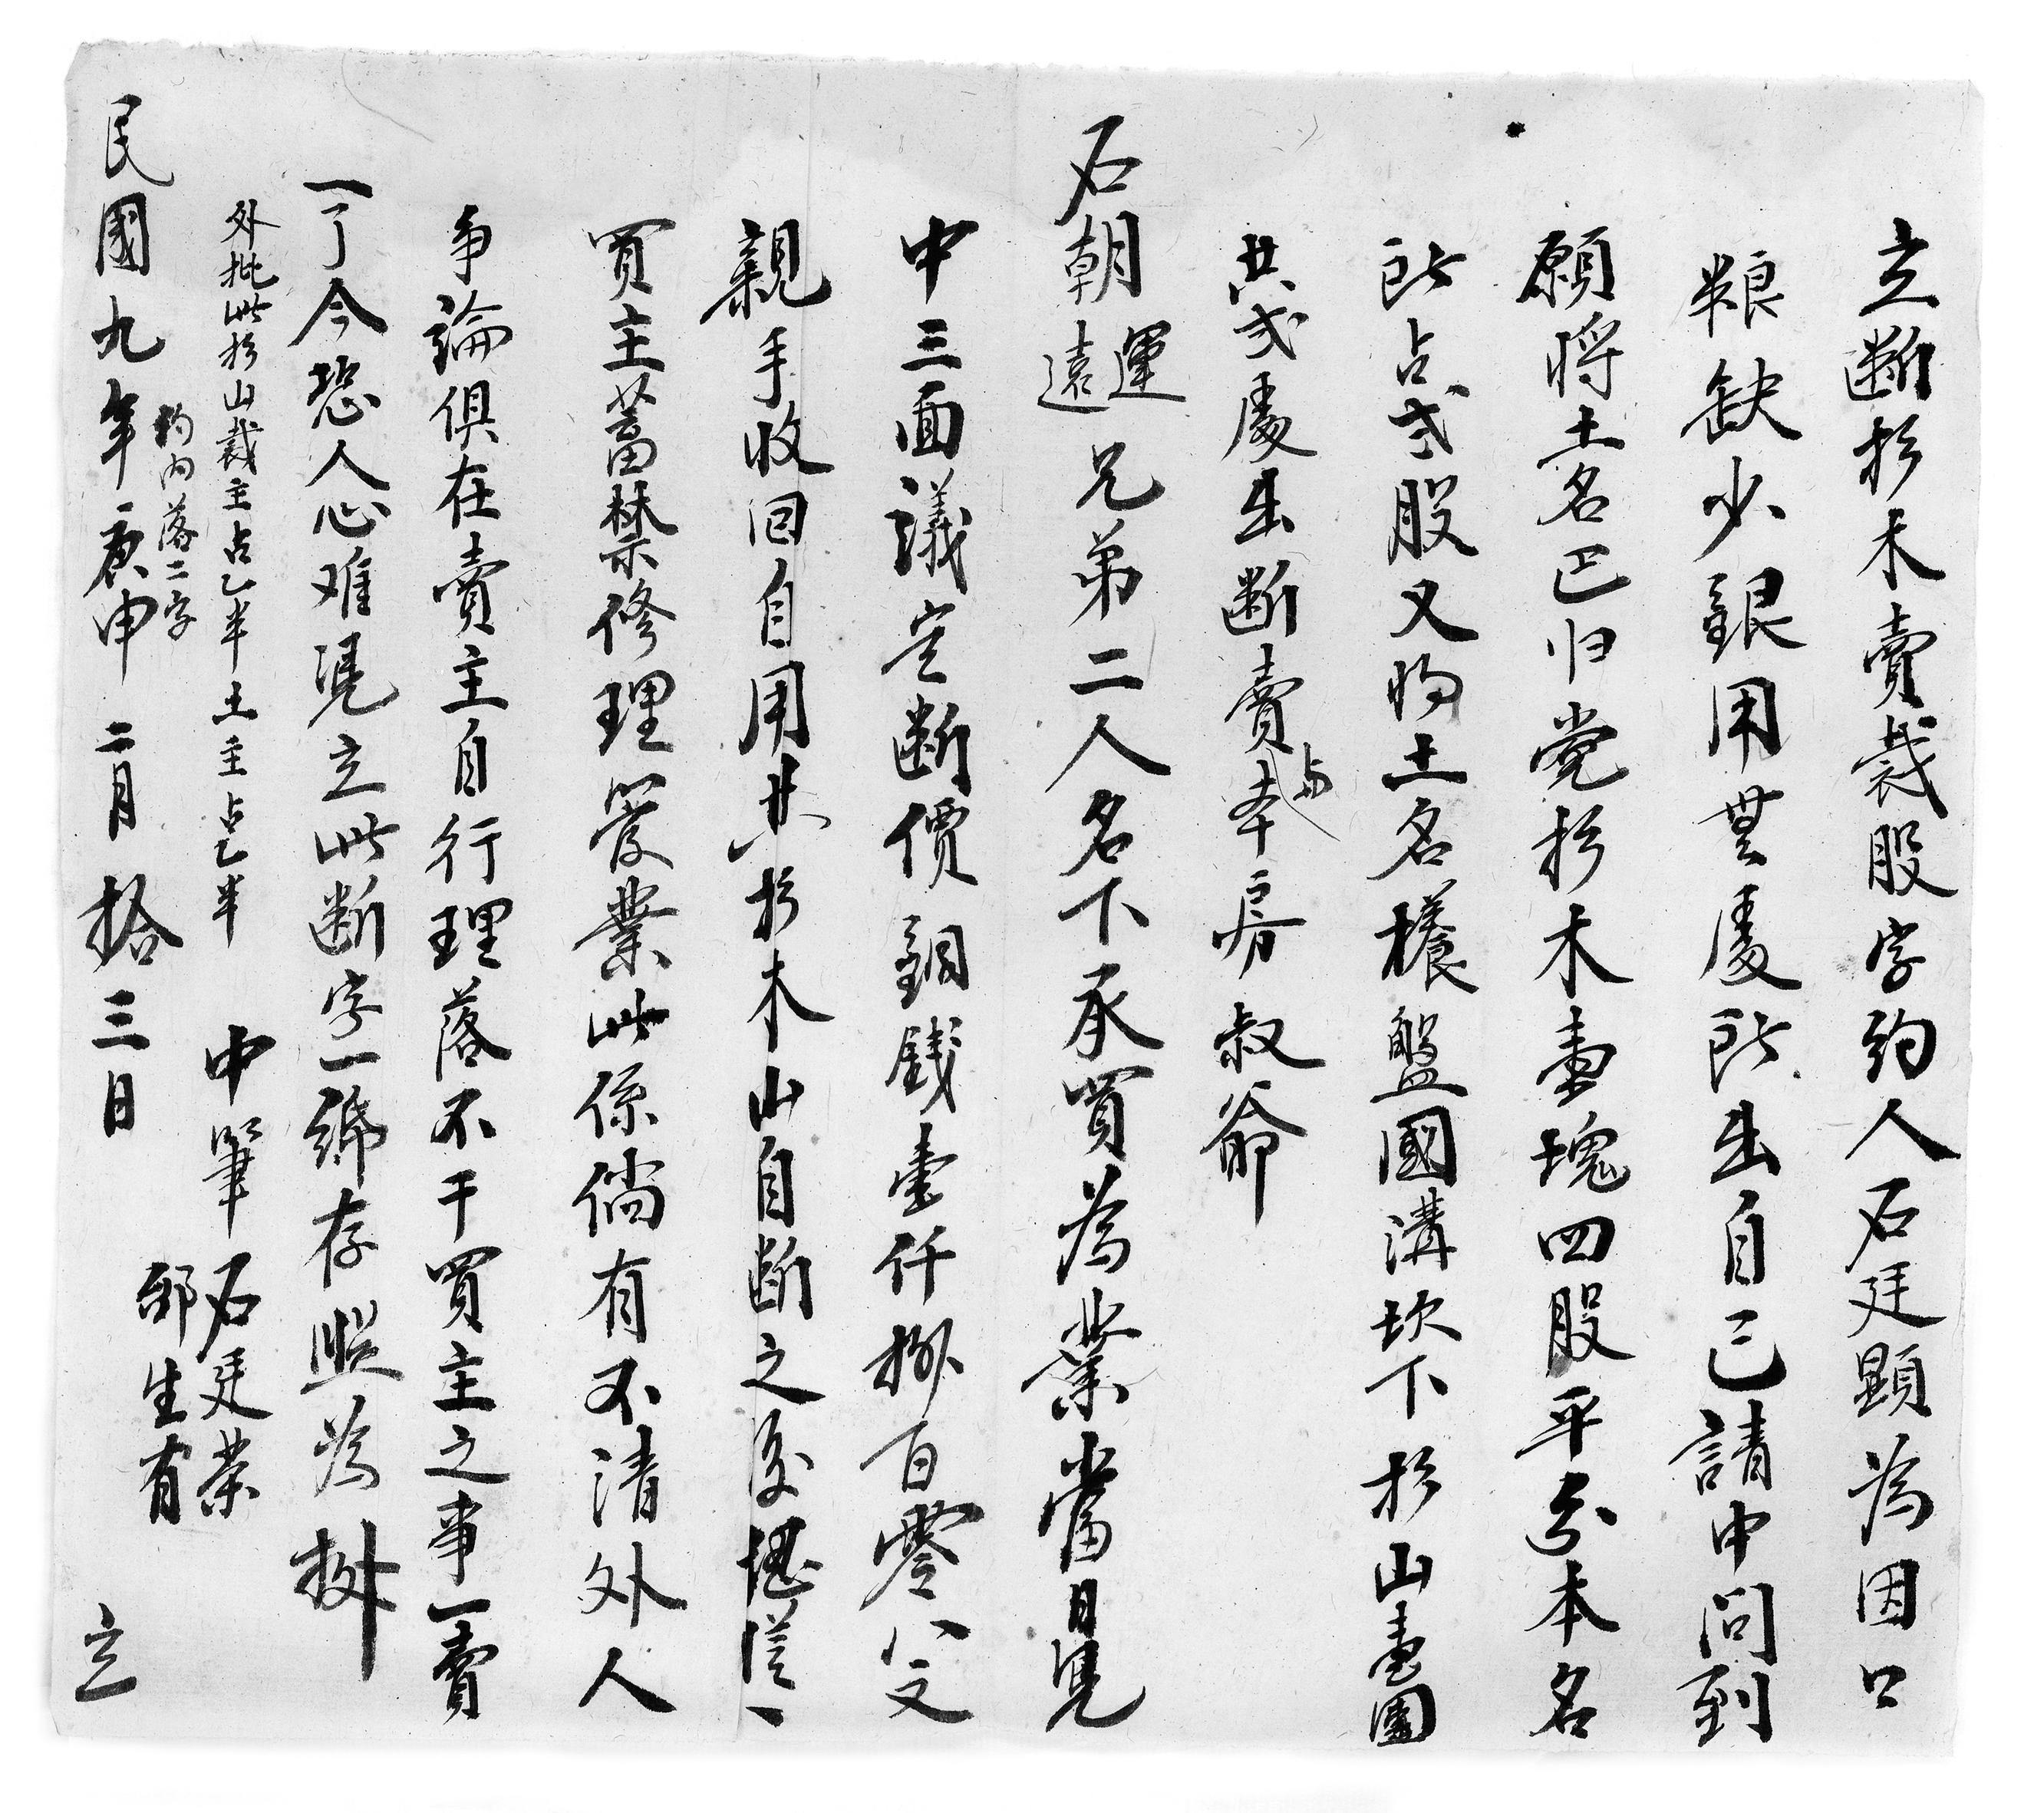 立断杉木賣裁股字約人石廷顕為因口
粮缺少銀用無處所出自己請中問到
願将土名巴归党杉木壹塊四股平分本名
所占弍股又将土名樣盤國溝坎下杉山壹團
共弍處出断賣与本房叔爺
石朝運遠兄弟二人名下承買為業當日凴
中三面議定断價銅錢壹仟捌百零八文
親手收回自用其杉木山自断之後憑從
買主蓄禁修理管業此係倘有不清外人
争論俱在賣主自行理落不干買主之事一賣
一了今恐人心难凴立此断字一紙存照為挶
外批此杉山裁主占乙半土主占乙半
約内落二字
中筆石廷荣
邰生有
民國九年庚申二月拾三日立